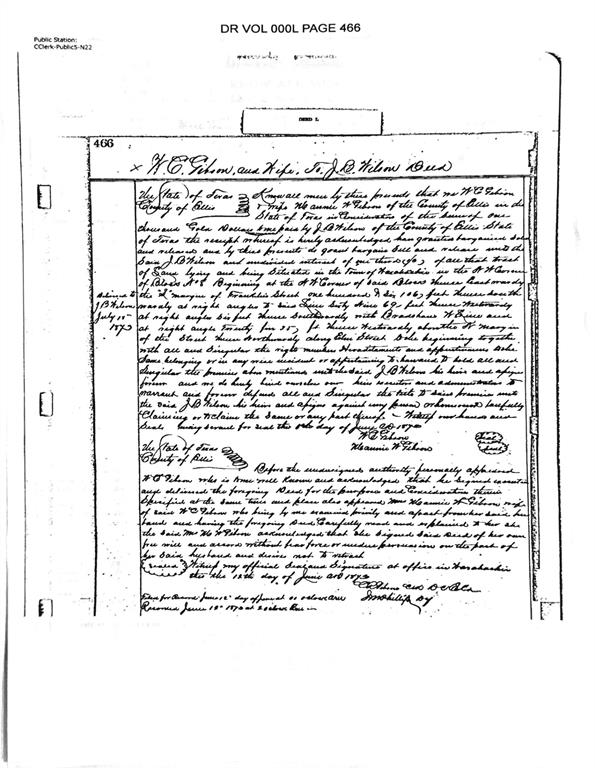 DR VOL 000L PAGE 466
Public Station:
CClerk-Public5-N22
DEED L
466
W. C. Gibson, and Wife, To J. B. Wilson Deed
The State of Texas Know all men by these presents that we W C Gibson
County of Ellis & wife Mannie W Gibson of the County of Ellis in the
State of Texas in Consideration of the sum of one
thousand Gold Dollars to me paid by J. B Wilson of the County of Ellis State
of Texas the receipt whereof is hereby acknowledged have granted bargained sold
and released and by these presents do grant bargain sell and release unto the
Said J. B Wilson and undivided interest of of all that tract
of Land lying and being Situated in the Town of Waxahachie in the N W Corner
of Block No 8 Beginning at the N W Corner of Said Block thence Eastwardly
the margin of Franklin Street one hundred & Six 106, feet thence South
wardly at right angles to said Line Sixty Nine 69 feet thence Westwardly
at right angles Six feet thence Southwardly with Bradshaws W Line and
at right angle Twenty five 25, ft thence Westwardly
of the Street thence Northwardly along Elm Street beginning together
with all and Singular the right members Hereditaments and appurtenances to the
Same belonging or in any wise incident or appertaining to have and to hold all and
Singular the premises above mentioned unto the said J. B Wilson his heirs and assigns
forever and we do hereby bind ourselves our heirs executors and administrators to
warrant and forever defend all and Singular the title to Said premises unto
the said J. B Wilson his heirs and assigns against every person whomsoever Lawfully
Claiming or to Claim the Same or any part thereof - Witness our hands and
Seals having scrawl for seal this day of June AD 1873
W. C. Gibson
Mannie W. Gibson
Delivered to
J B Wilson
July 15
1873
The State of Texas
County of Ellis Before the undersigned authority personally appeared
W C Gibson who is to me well Known and acknowledged that he signed executed
and delivered the foregoing Deed for the purposes and Consideration therein
Specified at the same time and place also appeared Mrs Mannie W. Gibson wife
of said W C Gibson who being by me examined privily and apart from her said hus
band and having the foregoing Deed Carefully read and explained to her she
the Said Mrs W Gibson acknowledged that she Signed Said Deed of her own
free will and accord without fear force or undue persuasion on the part of
her Said husband and desires not to retract
Sealed Witness my official Seal and Signature at office in Waxahachie
this the 12th day of June AD 1873
Filed for Record June 12 day of June at o clock
Recorded June